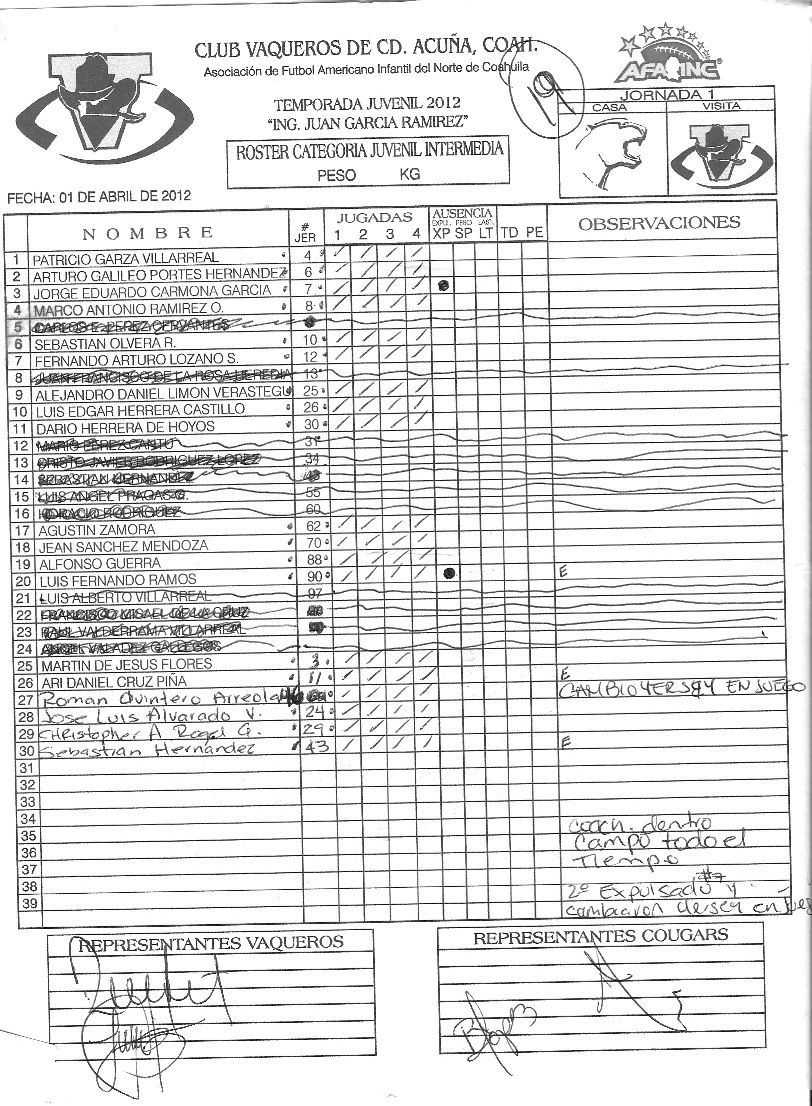 CLUB VAQUEROS DE CD. ACUÑA, COAH.
Asociación de Futbol Americano Infantil del Norte de Coahuila
TEMPORADA JUVENIL 2012
"ING. JUAN GARCIA RAMIREZ"
ROSTER CATEGORIA JUVENIL INTERMEDIA
PESO KG
19
AFAINC
JORNADA 1
CASA VISITA
FECHA: 01 DE ABRIL DE 2012
NOMBRE # JER JUGADAS 1 2 3 4 AUSENCIA EXPUL. PESO LAST. XP SP LT TD PE OBSERVACIONES
1 PATRICIO GARZA VILLARREAL 4
2 ARTURO GALILEO PORTES HERNANDEZ 6
3 JORGE EDUARDO CARMONA GARCIA 7
4 MARCO ANTONIO RAMIREZ O. 8
5 CARLOS E. PEREZ CERVANTES
6 SEBASTIAN OLVERA R. 10
7 FERNANDO ARTURO LOZANO S. 12
8 JUAN FRANCISCO DE LA ROSA HEREDIA 13
9 ALEJANDRO DANIEL LIMON VERASTEGU 25
10 LUIS EDGAR HERRERA CASTILLO 26
11 DARIO HERRERA DE HOYOS 30
12 MARIO PEREZ CANTU 31
13 CRISTO JAVIER RODRIGUEZ LOPEZ 34
14 SEBASTIAN HERNANDEZ 43
15 LUIS ANGEL FRAGAS G. 55
16 HORACIO RODRIGUEZ 60
17 AGUSTIN ZAMORA 62
18 JEAN SANCHEZ MENDOZA 70
19 ALFONSO GUERRA 88
20 LUIS FERNANDO RAMOS 90 E
21 LUIS ALBERTO VILLARREAL 97
22 FRANCISCO MISAEL DE LA CRUZ
23 RAUL VALDERRAMA VILLARREAL
24 ANGEL VALADEZ GALLEGOS
25 MARTIN DE JESUS FLORES 3
26 ARI DANIEL CRUZ PIÑA 11 E
27 Roman Quintero Arreola 46 CAMBIO YERSEY EN JUEGO
28 Jose Luis Alvarado V. 24
29 CHRistopher A Rogel G. 29
30 Sebastian Hernandez 43 E
31
32
33
34
35 coach. dentro
36 Campo todo el
37 Tiempo
38 #7
39 2º Expulsado y
cambiaron Jersey en jue
REPRESENTANTES VAQUEROS
REPRESENTANTES COUGARS